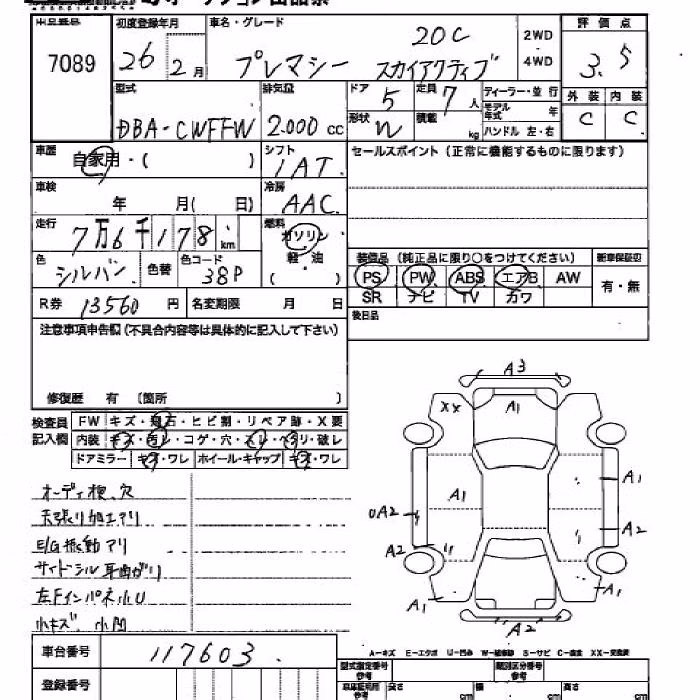 7089
初度登録年月
26 2月
車名・グレード
20C
プレマシー スカイアクティブ
2WD
4WD
評価点
3.5
外装 内装
C C
型式
DBA-CWFFW
排気量
2.000 cc
ドア 5
定員 7人
形状
積載 kg
ディーラー・並行
モデル年式 年
ハンドル 左・右
車歴
自家用・( )
シフト
IAT
セールスポイント(正常に機能するものに限ります)
車検
年 月( 日)
冷房
AAC
走行
7万6千178km
燃料
ガソリン
軽・油
( )
色
シルバー
色替
色コード
38P
装備品(純正品に限り○をつけてください)
新車保証書
PS PW ABS エアB AW
SR ナビ TV カワ
有・無
R券 13560円
名変期限 月 日
後日品
注意事項申告欄(不具合内容等は具体的に記入して下さい)
修復歴 有 〔箇所 〕
検査員記入欄
FW キズ・飛石・ヒビ割・リペア跡・X要
内装 キズ・汚レ・コゲ・穴・スレ・ヘリ・破レ
ドアミラー キズ・ワレ ホイール・キャップ キズ・ワレ
オーディオ横、穴
天張り加工アリ
E/G振動アリ
サイドシル耳曲がり
左Fインパネ小U
小キズ 小凹
A3
XX
A1
A1
A1
UA2
A2
A2
A1
A1
A2
A-キズ E-エクボ U-凹み W-補修跡 S-サビ C-腐食 XX-交換済
車台番号 117603
登録番号
型式指定番号 参考
類別区分番号 参考
長さ cm
幅 cm
高さ cm